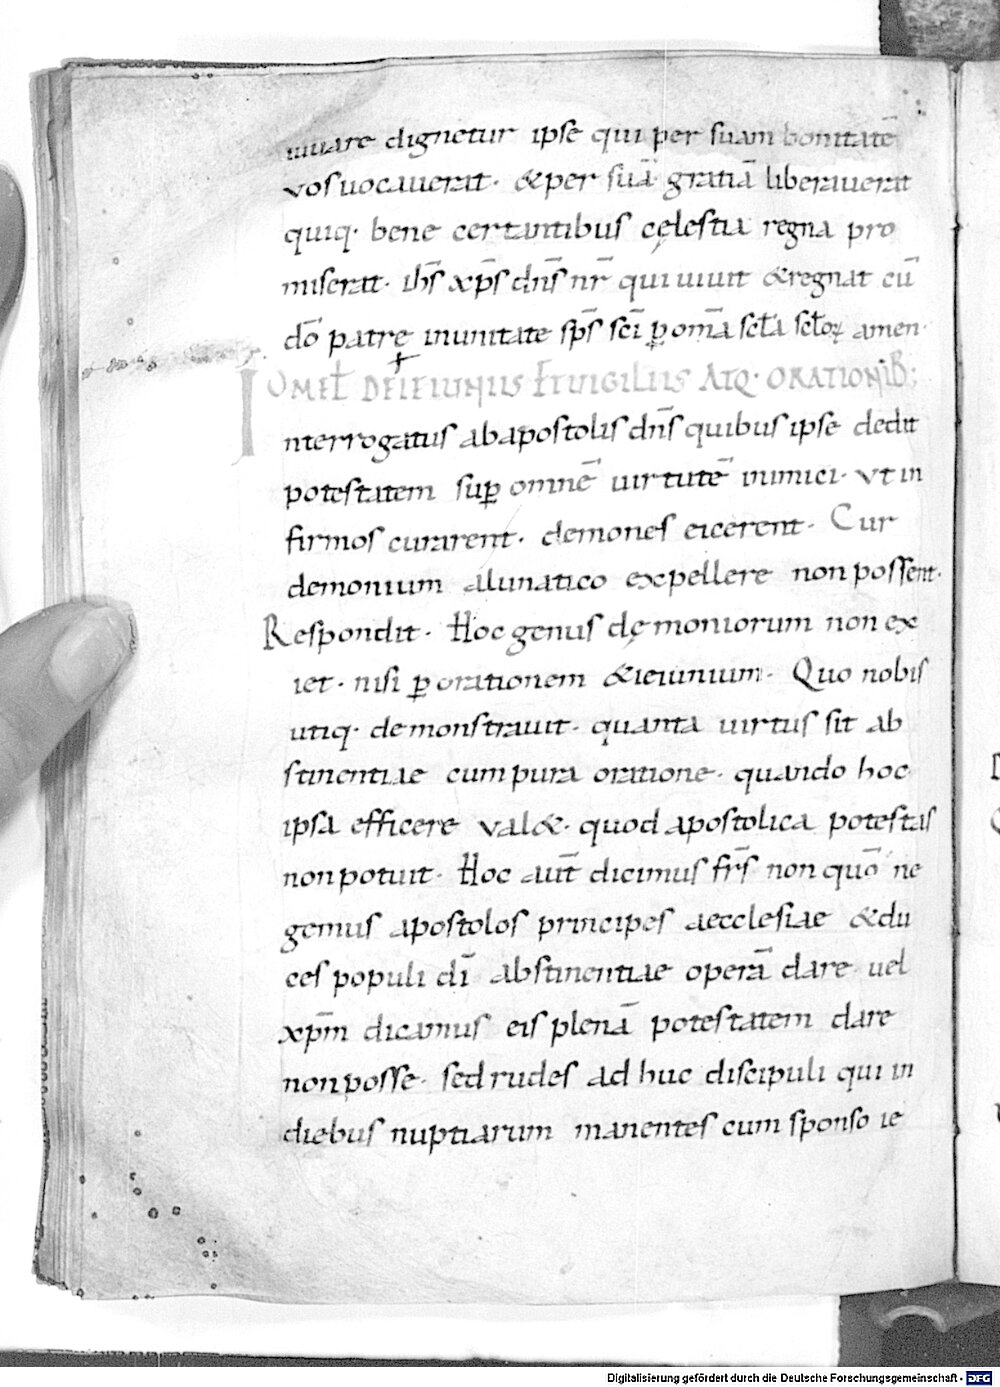 iuuare dignetur ipse qui per suam bonitatē
vos uocauerat. & per suā gratiā liberauerat
quiq. bene certantibus cęlestia regna pro
miserat. ih̄s xp̄s dn̄s nr̄ qui uiuit & regnat cū
dō patre in unitate sp̄s sc̄i ꝑ om̄a scl̄a scl̄oꝝ amen.
OMEL DE IEIUNIIS ET UIGILIIS ATQ. ORATIONIB;
Interrogatus ab apostolis dn̄s quibus ipse dedit
potestatem suꝑ omnē uirtutē inimici. vt in
firmos curarent. demones eicerent. Cur
demonium a lunatico expellere non possent.
Respondit. Hoc genus dęmoniorum non ex
iet. nisi ꝑ orationem & ieiunium. Quo nobis
utiq. demonstrauit. quanta uirtus sit ab
stinentiae cum pura oratione. quando hoc
ipsa efficere val&. quod apostolica potestas
non potuit. Hoc aut̄ dicimus fr̄s non quō ne
gemus apostolos principes aecclesiae & du
ces populi dī abstinentiae operā dare uel
xp̄m dicamus eis plenā potestatem dare
non posse. sed rudes ad huc discipuli qui in
diebus nuptiarum manentes cum sponso ie
Digitalisierung gefördert durch die Deutsche Forschungsgemeinschaft - DFG